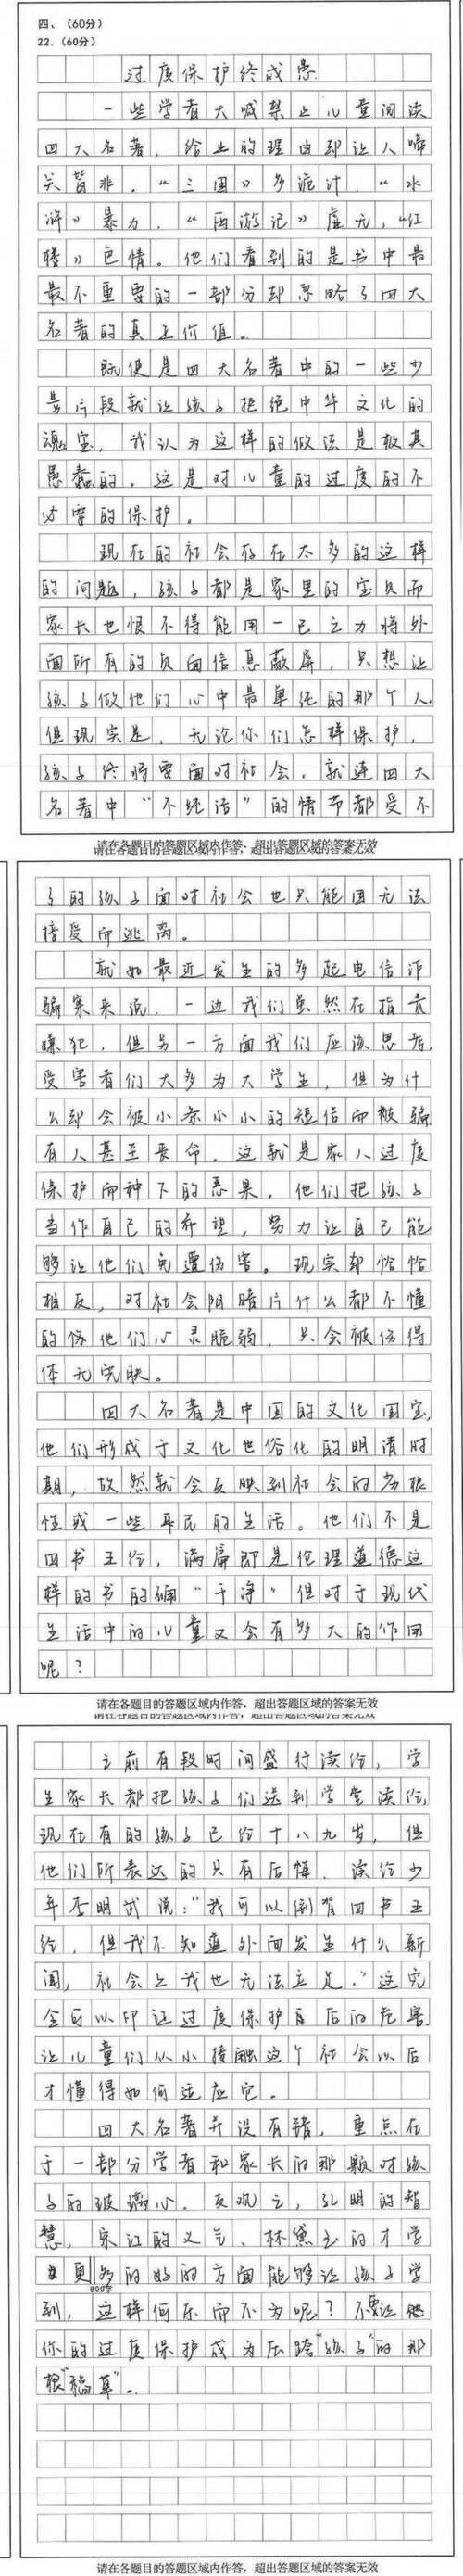 四、（60分）
22.（60分）
过度保护终成患
一些学者大喊禁止儿童阅读
四大名著，给出的理由却让人啼
笑皆非，“三国》多诡计，“水
浒》暴力，“西游记》虚无，“红
楼》色情。他们看到的是书中最
最不重要的一部分却忽略了四大
名著的真正价值。
既便是四大名著中的一些少
量片段就让孩子拒绝中华文化的
瑰宝，我认为这样的做法是极其
愚蠢的。这是对儿童的过度的不
必要的保护。
现在的社会存在太多的这样
的问题，孩子都是家里的宝贝而
家长也恨不得能用一己之力将外
面所有的负面信息蔽屏，只想让
孩子做他们心中最单纯的那个人.
但现实是，无论你们怎样保护，
孩子终将要面对社会，就连四大
名著中“不纯洁”的情节都受不
请在各题目的答题区域内作答，超出答题区域的答案无效
了的孩子面对社会也只能因无法
接受而逃离。
就如最近发生的多起电信诈
骗案来说，一边我们虽然在指责
嫌犯，但另一方面我们应该思考，
受害者们大多为大学生，但为什
么却会被小小的短信而被骗
有人甚至丧命，这就是家人过度
保护而种下的恶果，他们把孩子
当作自己的希望，努力让自己能
够让他们免遭伤害。现实却恰恰
相反，对社会阴暗片什么都不懂
的他们心灵脆弱，只会被伤得
体无完肤。
四大名著是中国的文化国宝，
他们形成于文化世俗化的明清时
期，故然就会反映到社会的劣根
性或一些平民的生活。他们不是
四书五经，满篇即是伦理道德这
样的书的确“干净”但对于现代
生活中的儿童又会有多大的作用
呢？
请在各题目的答题区域内作答，超出答题区域的答案无效
之前有段时间盛行读经，学
生家长都把孩子们送到学堂读经，
现在有的孩子已经十八九岁，但
他们所表达的只有后悔，读经少
年李明试说：“我可以倒背四书五
经，但我不知道外面发生什么新
闻，社会上我也无法立足.”这完
全可以印证过度保护背后的危害.
让儿童们从小接触这个社会以后
才懂得如何适应它。
四大名著并没有错，重点在
于一部分学者和家长的那颗对孩
子的玻璃心。反观之，孔明的智
慧，宋江的义气、林黛玉的才学
更多的好的方面能够让孩子学
800字
到，这样何乐而不为呢？不要让
你的过度保护成为压跨“孩子”的那
根“稻草”.
请在各题目的答题区域内作答，超出答题区域的答案无效